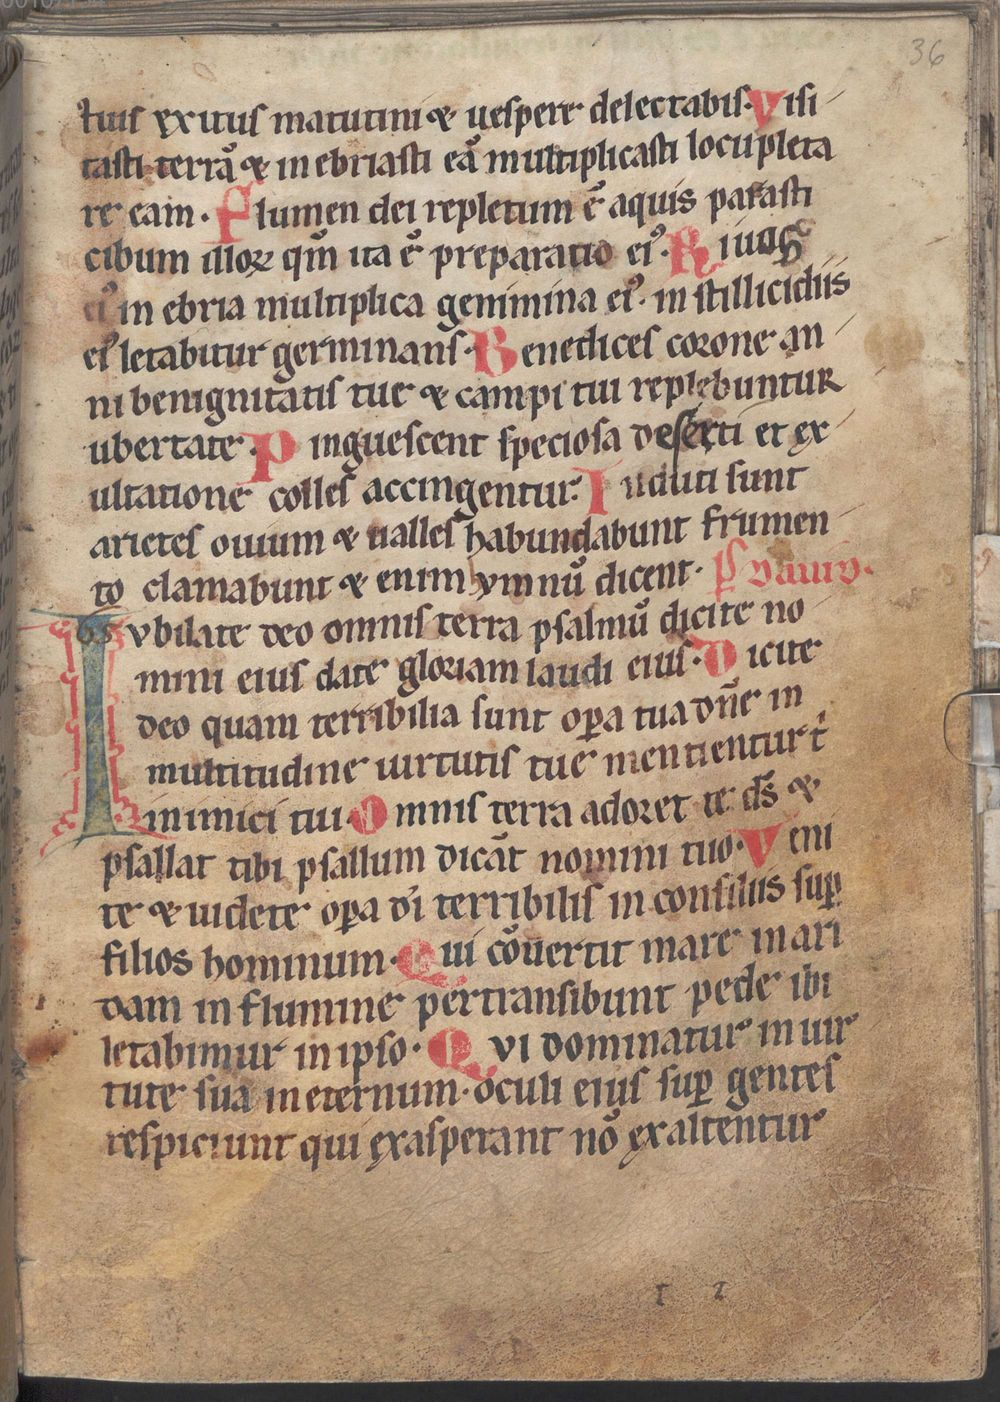 36
tuis exitus matutini & uespere delectabis. Visi
tasti terrã & inebriasti eã multiplicasti locupleta
re eam. Flumen dei repletum ẽ aquis parasti
cibum illoꝝ qm̃ ita ẽ preparatio eiꝰ. Riuos
eiꝰ in ebria multiplica genimina eiꝰ. in stillicidiis
eiꝰ letabitur germinans. Benedices corone an
ni benignitatis tue & campi tui replebuntur
ubertate. Pinguescent speciosa deserti et ex
ultatione colles accingentur. Induti sunt
arietes ouium & ualles habundabunt frumen
to clamabunt & enim ymnũ dicent. Pꝰ dauid.
65 Iubilate deo omnis terra psalmũ dicite no
mini eius date gloriam laudi eius. Dicite
deo quam terribilia sunt oꝑa tua dñe in
multitudine uirtutis tue mentientur t
inimici tui. Omnis terra adoret te ds̃ &
psallat tibi psallum dicãt nomini tuo. Veni
te & uidete oꝑa dĩ terribilis in consiliis suꝑ
filios hominum. Qui cõuertit mare in ari
dam in flumine pertransibunt pede ibi
letabimur in ipso. Qui dominatur in uir
tute sua in eternum. oculi eius suꝑ gentes
respiciunt qui exasperant nõ exaltentur